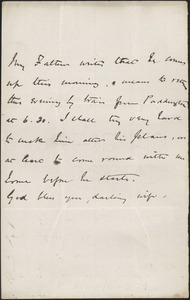 My Father writes that he comes
up this morning, & means to return
this evening by train from Paddington
at 6.30. I shall try very hard
to make him alter his plans, or
at least to come round with me
home before he starts.
God bless you, darling wife.